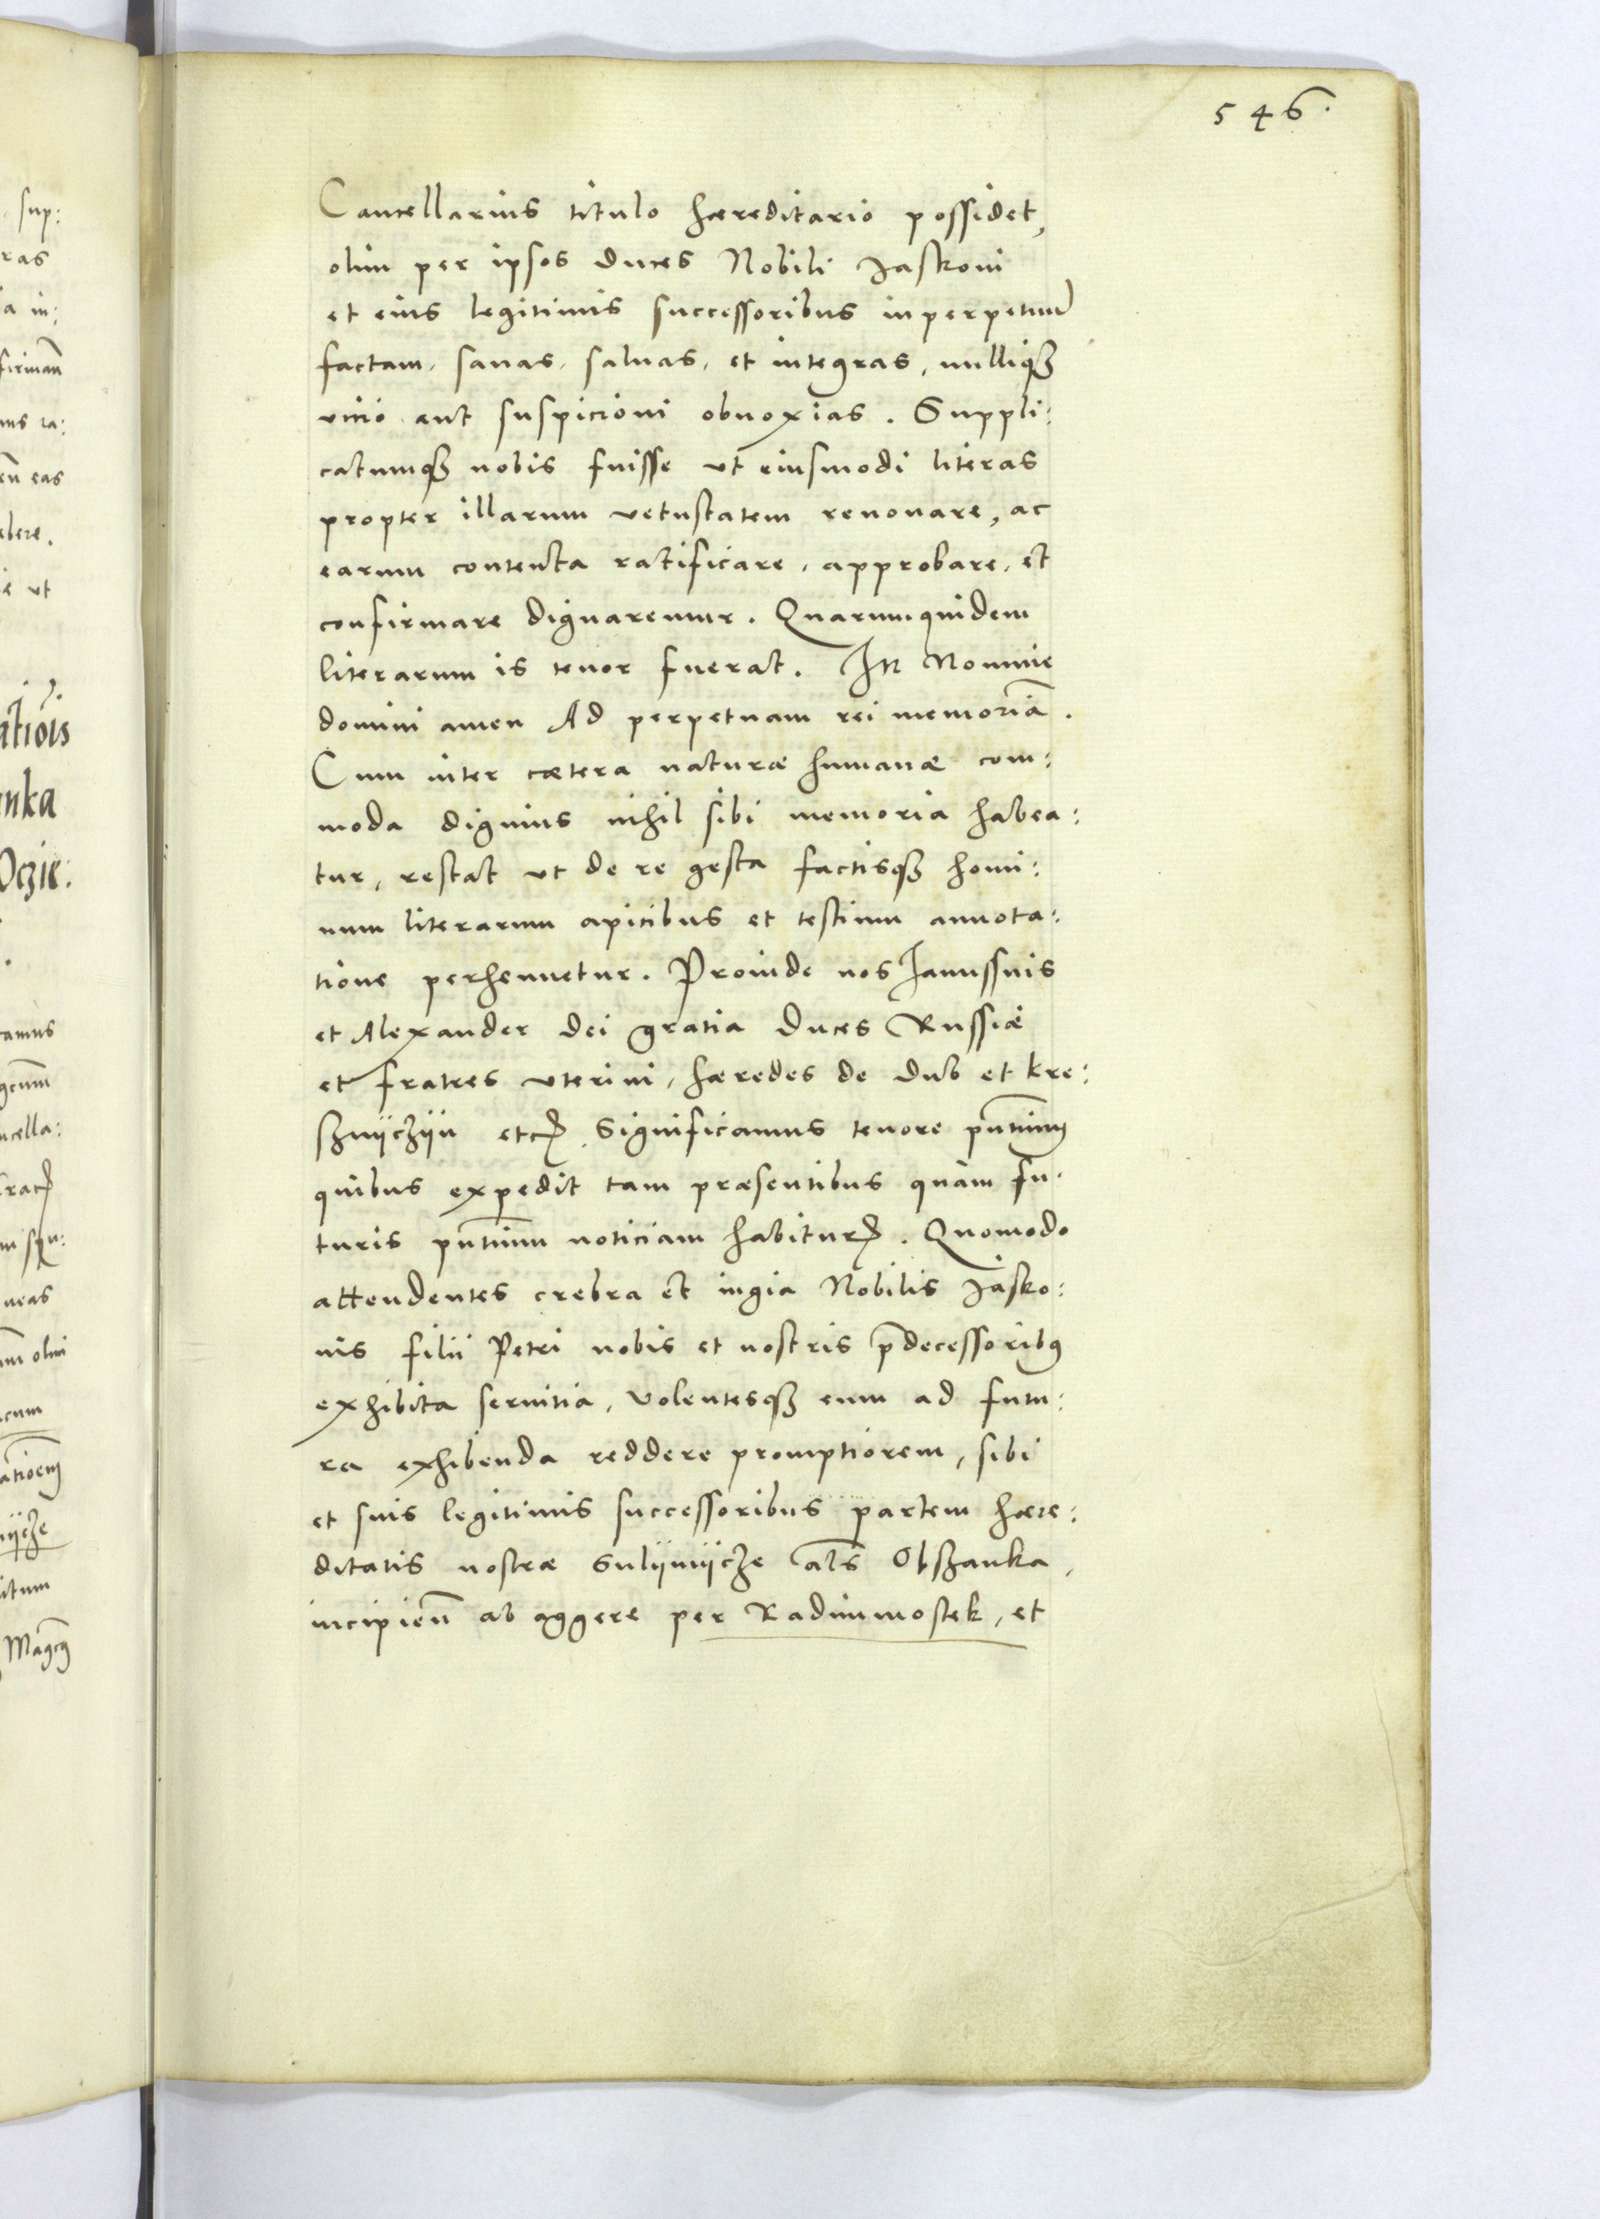 546.
Cancellarius titulo hæreditario possidet,
olim per ipsos duces Nobili Jaskoni
et eius legitimis successoribus inperpetuũ
factam, sanas, saluas, et integras, nulliqꝫ
vicio aut suspicioni obnoxias. Suppli:
catumqꝫ nobis fuisse vt eiusmodi literas
propter illarum vetustatem renouare, ac
earum contenta ratificare, approbare, et
confirmare dignaremur. Quarumquidem
literarum is tenor fuerat. In Nomine
domini amen Ad perpetuam rei memoriã.
Cum inter cætera naturæ humanæ com:
moda dignius nihil sibi memoria habea:
tur, restat vt de re gesta factisqꝫ homi:
num literarum apicibus et testium annota:
tione perhennetur. Proinde nos Janussius
et Alexander dei gratia Duces Russiæ
et fratres vterini, hæredes de Dub et kre:
szuijczijn etcꝫ Significamus tenore pñtium
quibus expedit tam præsentibus quàm fu:
turis pñtium noticiam habiturꝫ. Quomodo
attendentes crebra et ingia Nobilis Jasko:
nis filii Petri nobis et nostris p̃decessoribꝰ
exhibita seruitia, volentesqꝫ eum ad futu:
ra exhibenda reddere promptiorem, sibi
et suis legitimis successoribus partem hære:
ditatis nostræ Sulijmijcze als̃ Obszanka,
incipieñ ab aggere per Radimmostek, et
sup:
ras
ia in:
firmañ
eñ eas
ie vt
atiois
anka
Oczie:
ramus
ncella:
neas
olim
ationem
mijcze
itum